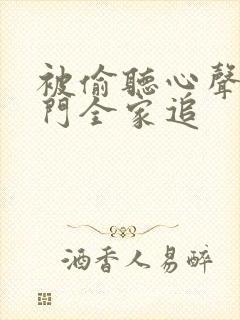 被偷聽心聲
門全家追
酒香人易醉